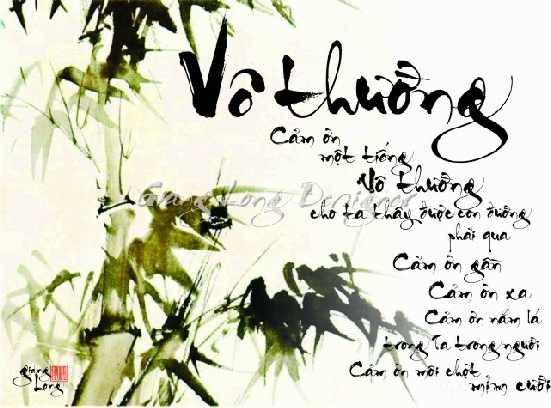 Vô thường
Cảm ơn
một tiếng
Vô thường
Giang Long Designer
cho ta thấy được con đường
phải qua
Cảm ơn gần
Cảm ơn xa
Cảm ơn nấm lá
trong ta trong người
Cảm ơn môi chột
mỉm cười
giang
Long